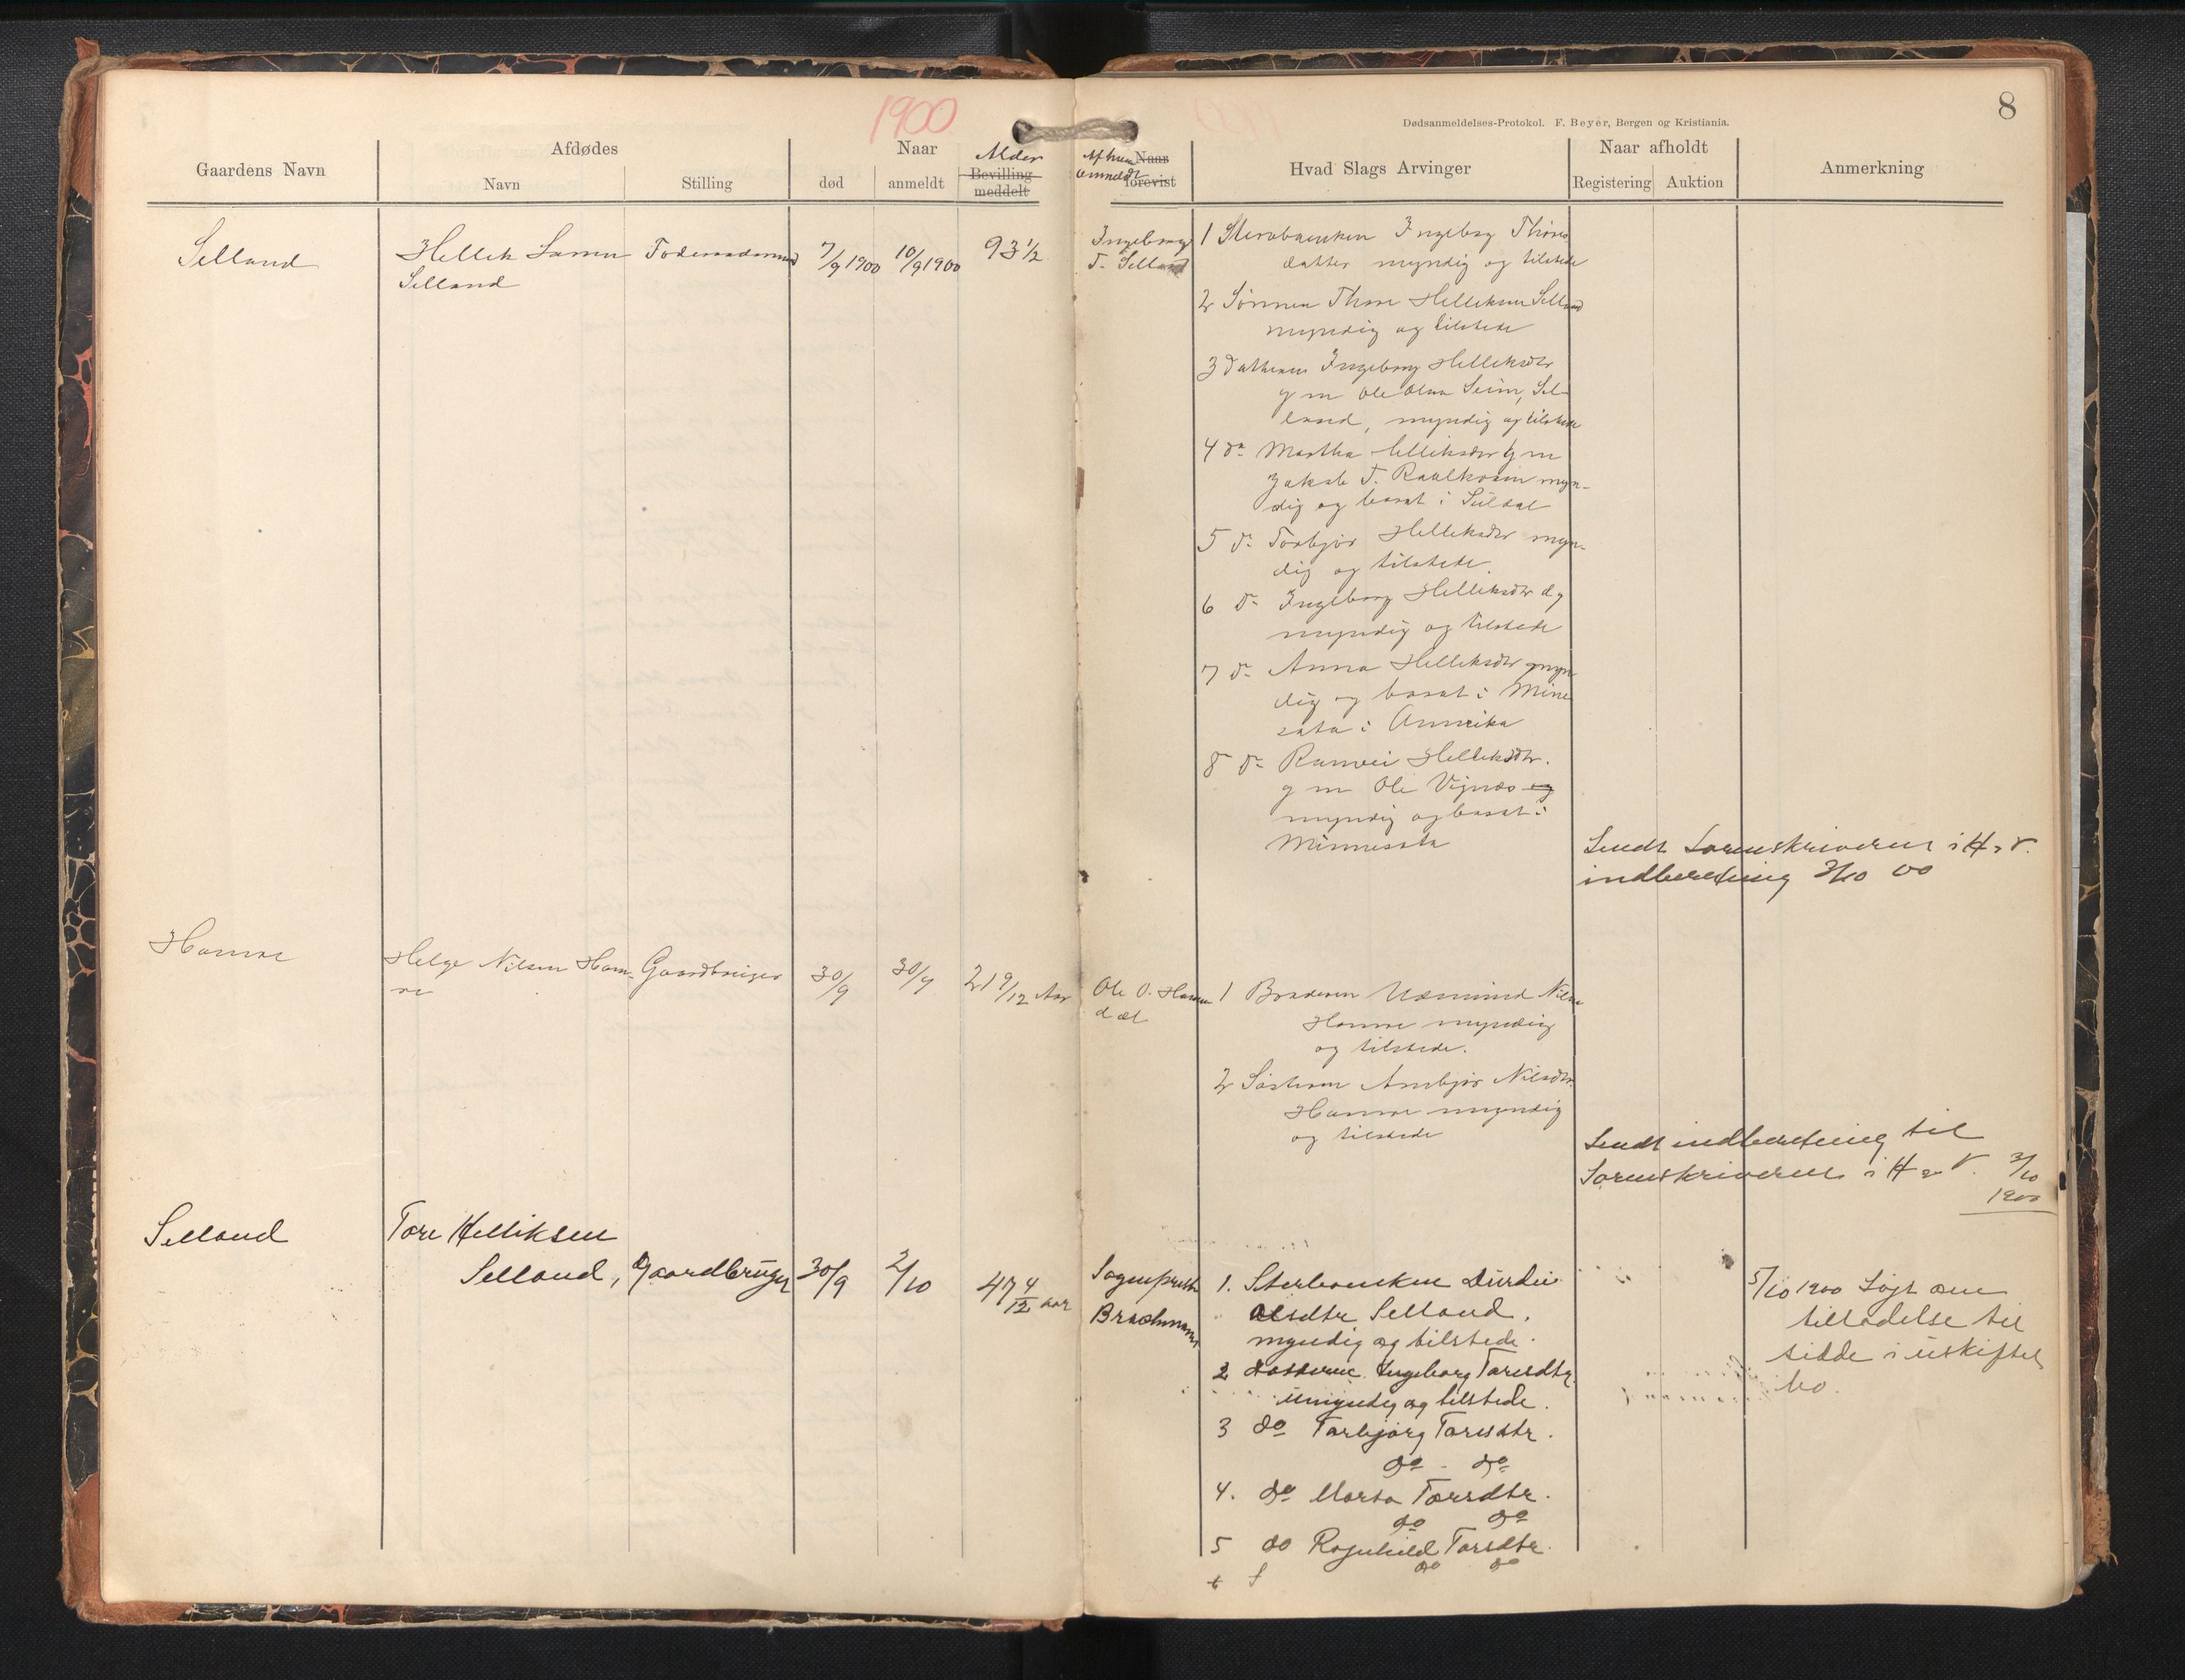 1900
8
Dødsanmeldelses-Protokol. F. Beyer, Bergen og Kristiania.
Gaardens Navn
Afdødes
Navn
Stilling
Naar
død
anmeldt
Alder
Bevilling meddelt
Af hvem anmeldt
Naar forevist
Hvad Slags Arvinger
Naar afholdt
Registering
Auktion
Anmerkning
Selland
Hellik Larsen
Selland
Føderaadsmand
7/9 1900
10/9 1900
93 1/2
Ingeborg
T. Selland
1 Stervboenken Ingebog Thores
datter myndig og tilstede
2 Sønnen Thore Helleksen Selland
myndig og tilstede
3 Datteren Ingeborg Helleksdtr
g m Ole Olsen Seim, Sel-
land, myndig og tilstede
4 do Martha Helliksdtr g m
Jakob T. Raulkvam myn-
dig og bosat i Suldal
5 do Torbjør Helleksdtr myn-
dig og tilstede
6 do Ingeborg Helleksdtr d y
myndig og tilstede
7 do Anna Helleksdtr myn
dig og bosat i Mine
sota i Amerika
8 do Ranvei Helleksdtr.
g m Ole Vignæs og
myndig og bosat i
Minnesota
Sendt Sorenskriveren i H. & V.
indberetning 3/10 00
Hamre
Helge Nilsen Ham-
re
Gaardbruger
30/9
30/9
21 9/12 Aar
Ole O. Hamre
d æl
1 Broderen Aamund Nilsen
Hamre myndig
og tilstede.
2 Søsteren Annbjør Nilsdtr.
Hamre myndig
og tilstede
Sendt indberetning til
Sorenskriveren i H & V. 3/10
1900
Selland
Tore Helliksen
Selland,
Gaardbruger
30/9
2/10
47 4/12 aar
Sogneprest
Brachmann
1. Sterboenken Durdei
Olsdtr Selland.
myndig og tilstede.
2 datteren Ingeborg Toresdtr.
umyndig og tilstede.
3 do Torbjørg Toresdtr.
do - do
4. do Marta Toresdtr.
do do
5 do Ragnhild Toresdtr.
do do
5/10 1900 Søgt om
tilladelse til
sidde i uskiftet
bo.